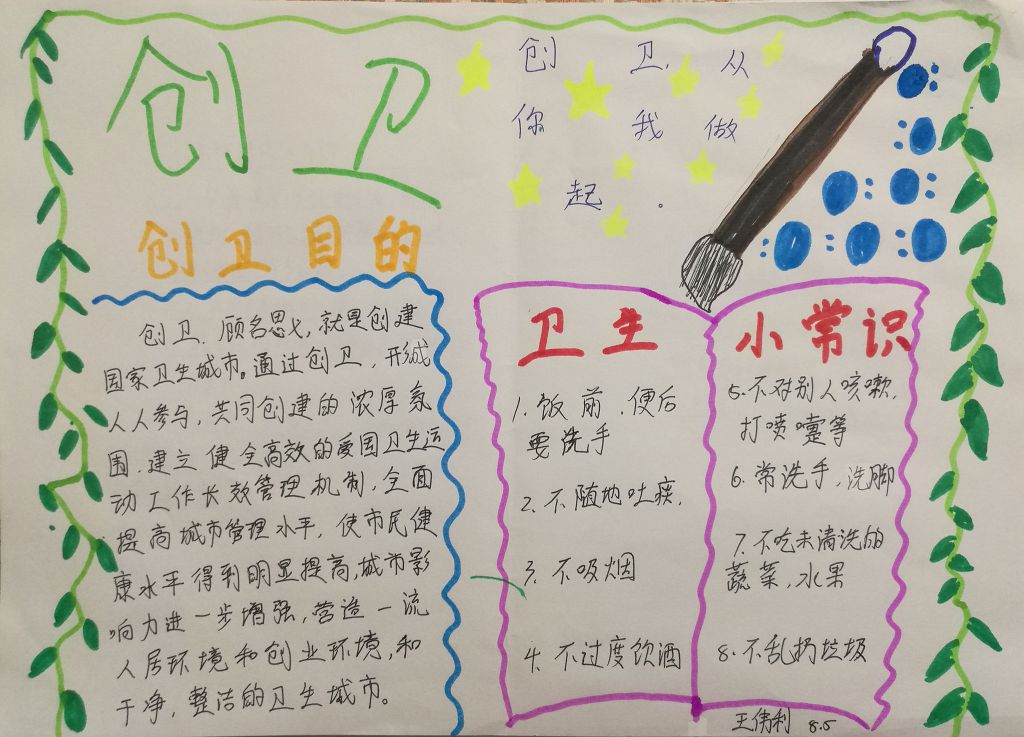 创卫
创卫,从
你我做
起。
创卫目的
创卫,顾名思义,就是创建
国家卫生城市。通过创卫,形成
人人参与,共同创建的浓厚氛
围,建立健全高效的爱国卫生运
动工作长效管理机制,全面
提高城市管理水平,使市民健
康水平得到明显提高,城市影
响力进一步增强,营造一流
人居环境和创业环境,和
干净,整洁的卫生城市。
卫生
1.饭前、便后
要洗手
2.不随地吐痰,
3.不吸烟
4.不过度饮酒
小常识
5.不对别人咳嗽,
打喷嚏等
6.常洗手,洗脚
7.不吃未清洗的
蔬菜,水果
8.不乱扔垃圾
王伟利 8.5